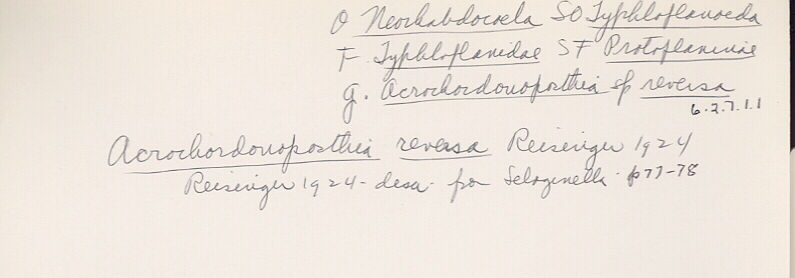 O Neorhabdocoela SO Typhloplanoeda
F. Typhloplanidae SF Protoplaninae
g. Acrochordonoposthia sp reversa
6.2.7.1.1
Acrochordonoposthia reversa Reisinger 1924
Reisinger 1924 - desc. for Selaginella. p77-78